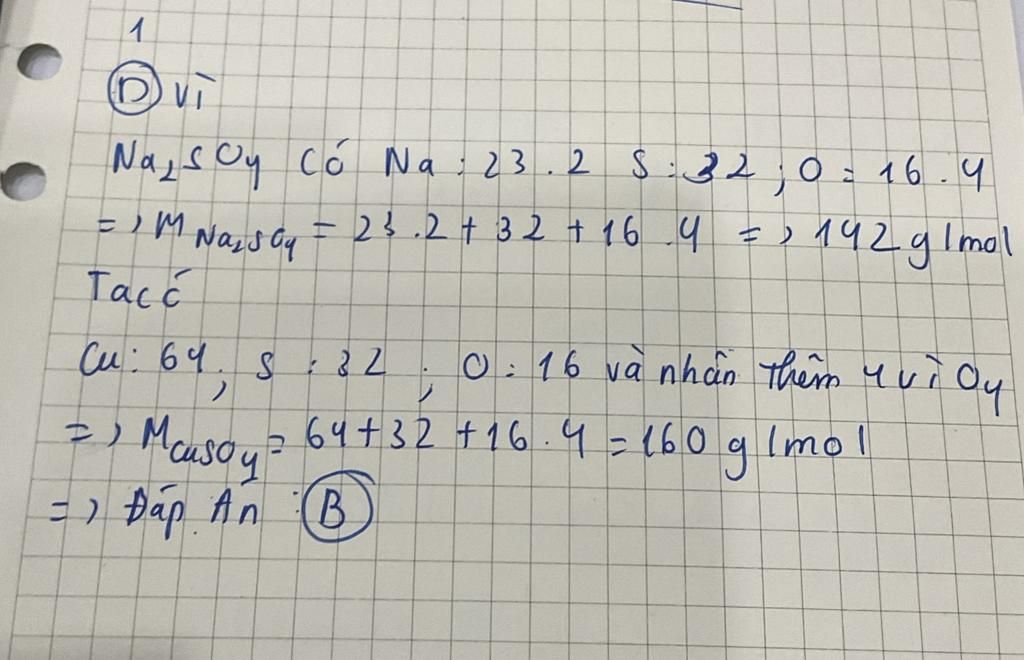 1
D vì
Na₂SO₄ có Na : 23 . 2 S : 32 ; O = 16 . 4
=> M Na₂SO₄ = 23 . 2 + 32 + 16 . 4 => 142 g/mol
Ta có
Cu : 64 ; S : 32 ; O : 16 và nhân thêm 4 vì O₄
=> M CuSO₄ = 64 + 32 + 16 . 4 = 160 g/mol
=> Đáp Án : B